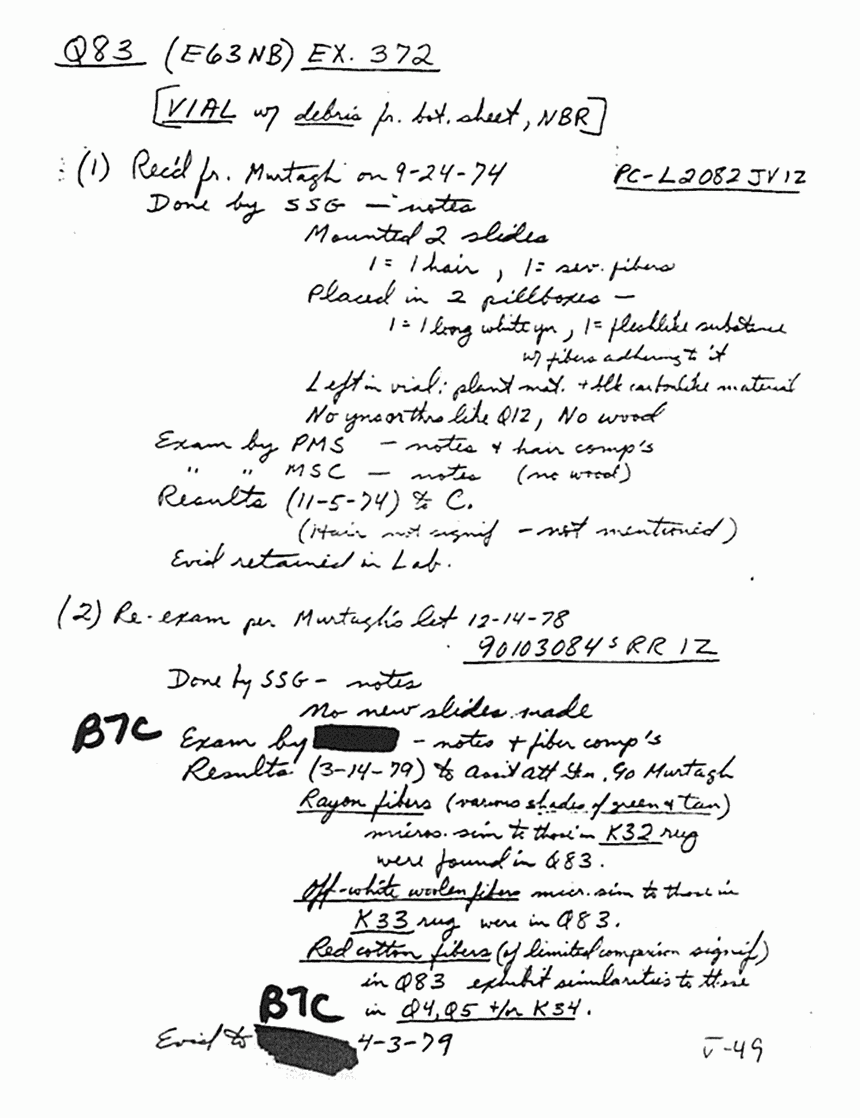 Q83 (E63NB) EX. 372
[VIAL w/ debris fr. bot. sheet, NBR]
(1) Rec'd fr. Murtagh on 9-24-74 PC-L2082 JV IZ
Done by SSG - notes
Mounted 2 slides
1 = 1 hair, 1 = sev. fibers
Placed in 2 pillboxes -
1 = 1 long white yn, 1 = fleshlike substance
w/ fibers adhering to it
Left in vial: plant mat. + blk carbonlike material
No yns or thrs like Q12, No wood
Exam by PMS - notes + hair comp's
" " MSC - notes (no wood)
Results (11-5-74) to C.
(Hair not signif - not mentioned)
Evid retained in Lab.
(2) Re-exam per Murtagh's let 12-14-78
90103084 S RR IZ
Done by SSG - notes
No new slides made
B7C Exam by - notes + fiber comp's
Results (3-14-79) to Assit Att Gn, Go Murtagh
Rayon fibers (various shades of green & tan)
micros. sim to those in K32 rug
were found in Q83.
Off-white woolen fibers micr. sim to those in
K33 rug were in Q83.
Red cotton fibers (of limited comparison signif)
in Q83 exhibit similarities to those
B7C in Q4, Q5 +/or K34.
Evid to 4-3-79 V-49